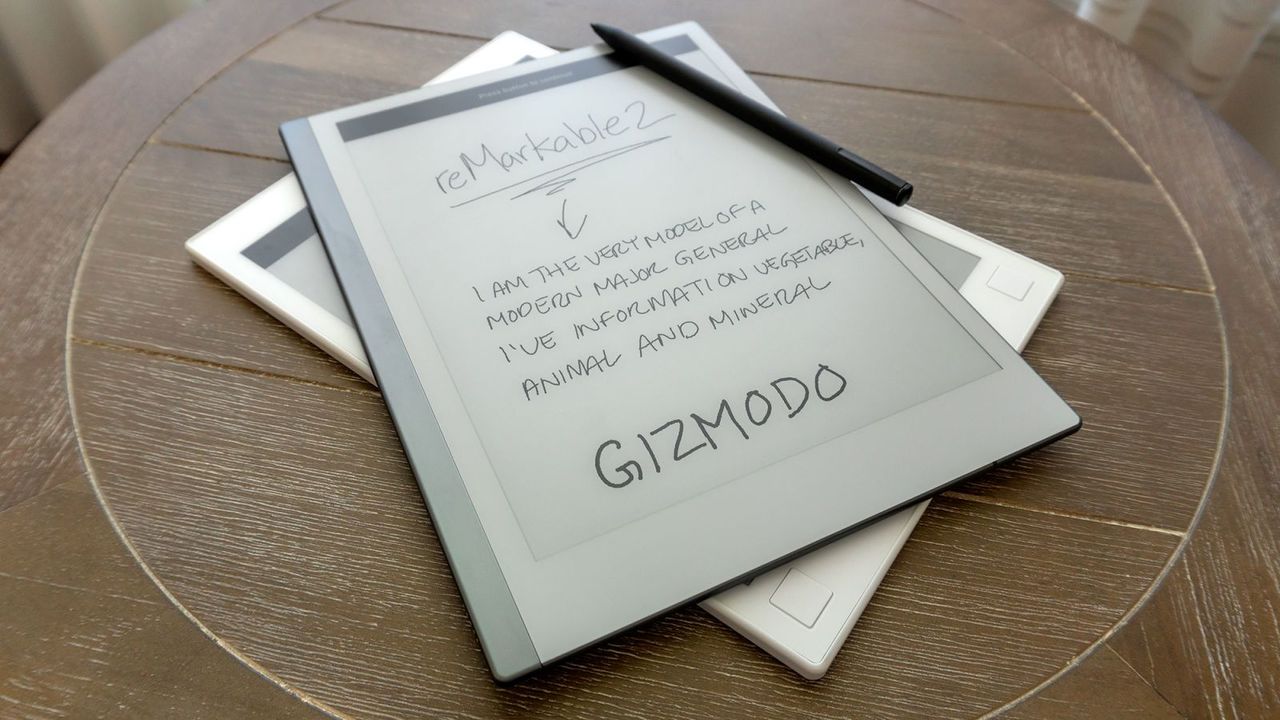 Press button to continue
reMarkable2
I AM THE VERY MODEL OF A
MODERN MAJOR GENERAL
I'VE INFORMATION VEGETABLE,
ANIMAL AND MINERAL
GIZMODO